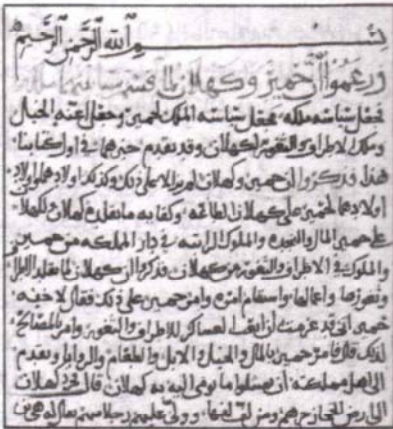 بسم الله الرحمن الرحيم
وزعموا ان حمير وكهلان لما
سياسه ملكه سياسه الملك لحمير وجعل اعنه الخيال
وملك الاطراف والثغور لكهلان وقد تقدم خبرهما في اول كتابنا
هذا وذكروا ان حمير وكهلان لم يزالا على ذلك وكذلك اولادهما واولاد
اولادهما لحمير على كهلان الطاعه وكفايه ما تقلده كهلان ولكهلان
على حمير المال والنجده والملوك الراتبه في دار المملكه من حمير
والملوك في الاطراف والثغور من كهلان فذكروا ان كهلان لما تقلد الاطراف
وثغورها واعمالها واستقام امره وامر حمير على ذلك فقال لاخيه
حمير اني قد عزمت العساكر للاطراف والثغور وامر المصالح
لذلك فامر حمير بالمال والخيل والابل والطعام والروايا وتقدم
الى اهل مملكته ان يمتثلوا ما يومي اليه به كهلان قال كهلان
الى ارض الحجاز جرهم ومن لف لفها وولى عليهم رجلا منهم يقال له